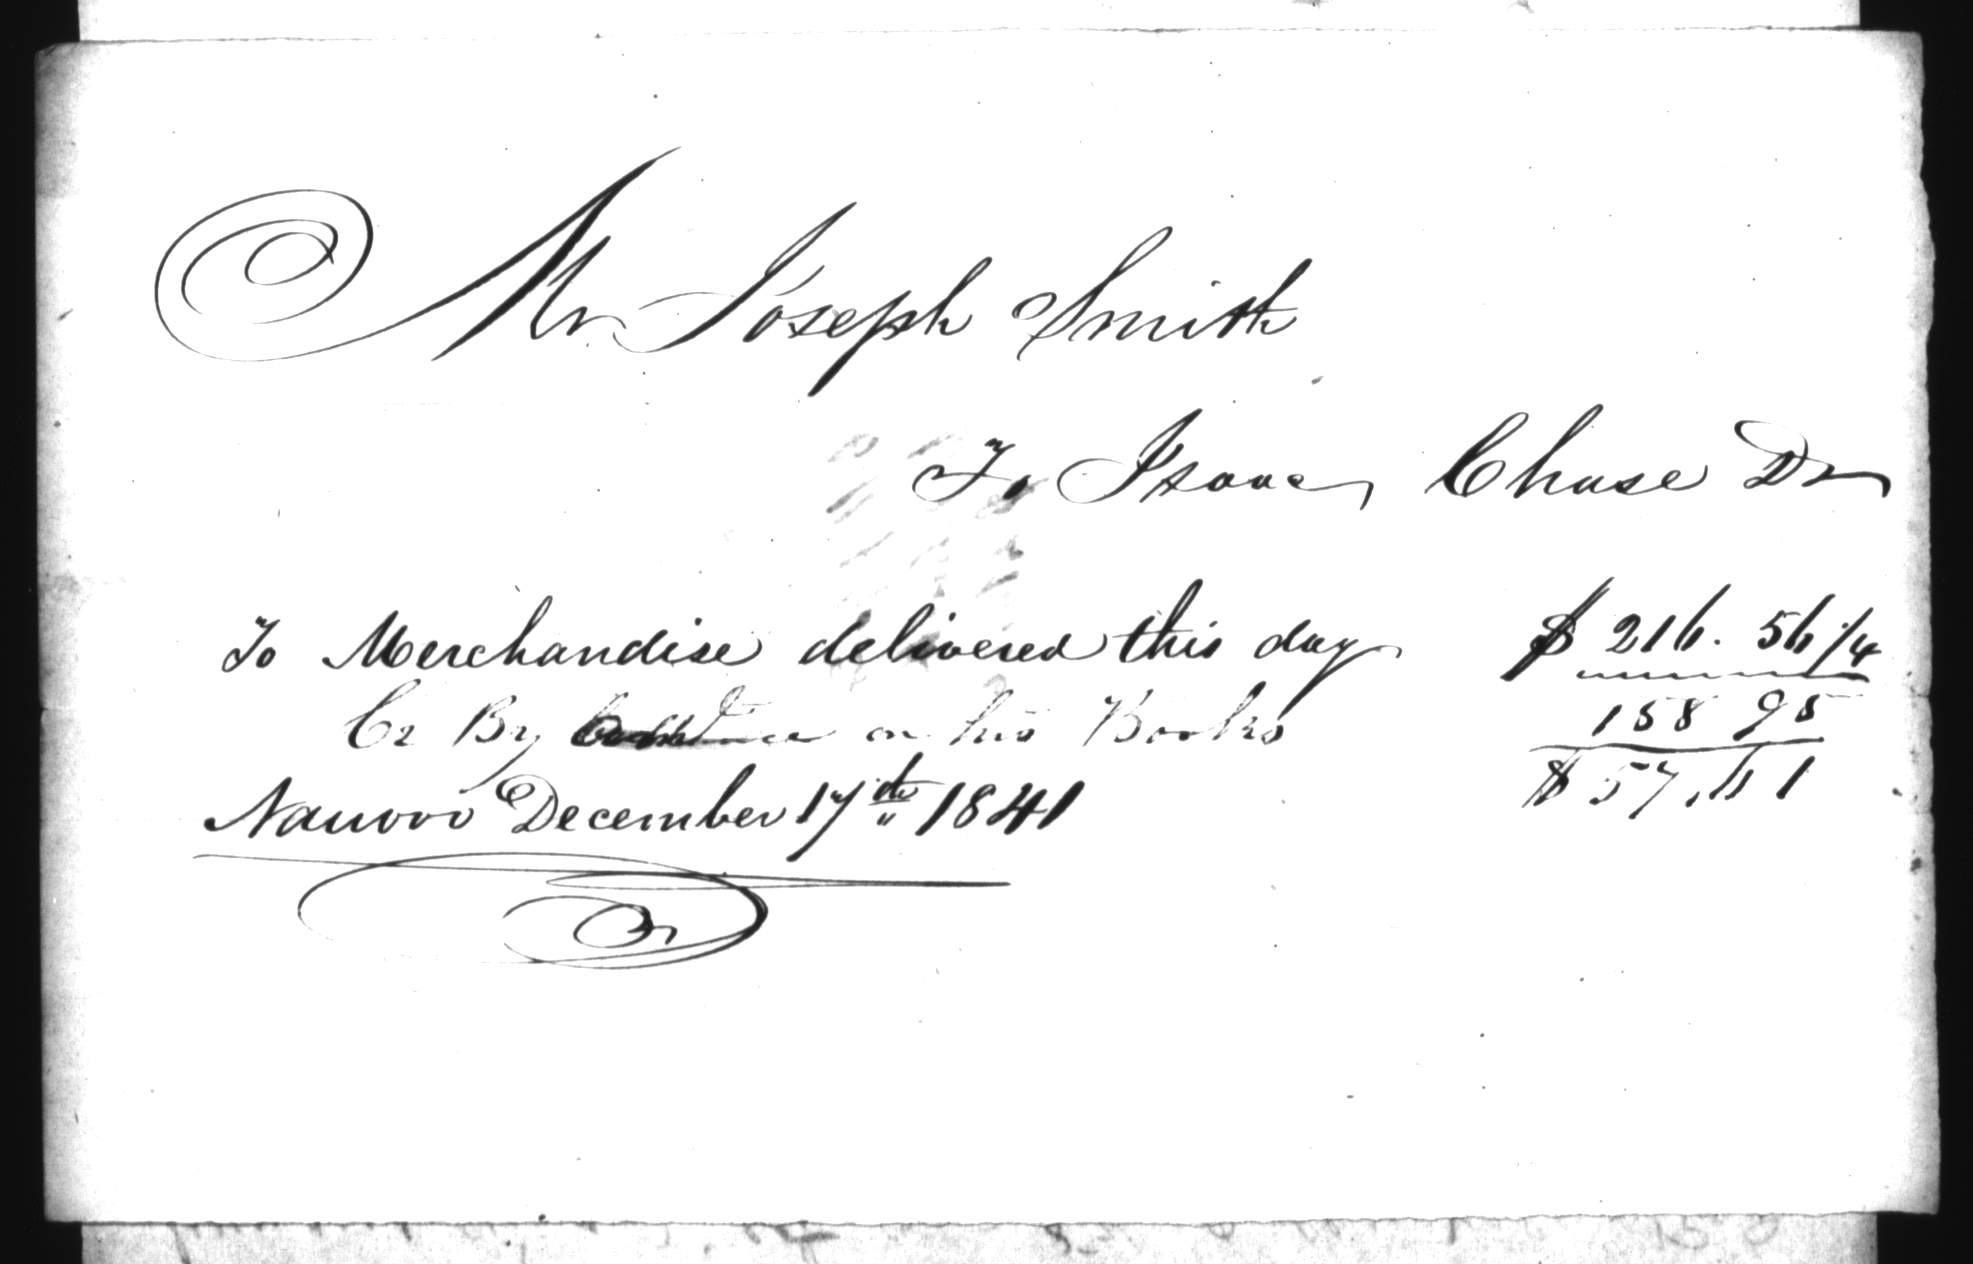 Mr Joseph Smith
To Isaac Chase Dr
To Merchandise delivered this day $ 216. 56 1/4
Cr By on his Books 158 95
Nauvoo December 17th 1841 $ 57,61